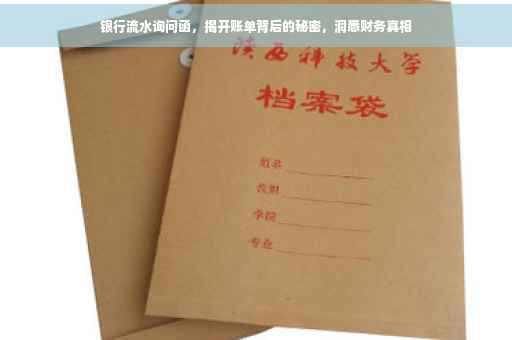 银行流水询问函，揭开账单背后的秘密，洞悉财务真相
陕西科技大学
档案袋
姓名
学院
专业